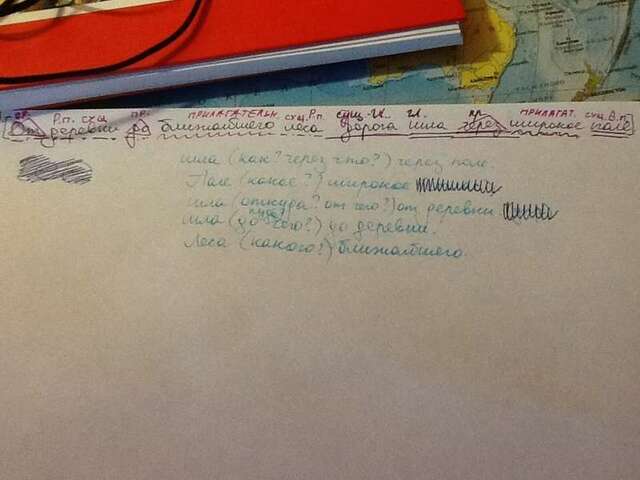 пр. Р.п. сущ пр. ПРИЛАГАТЕЛЬН сущ.Р.п. сущ.-гл. гл. пр. ПРИЛАГАТ. сущ.В.п.
От деревни до ближайшего леса дорога шла через широкое поле
шла (как? через что?) через поле.
Поле (какое?) широкое
шла (откуда? от чего?) от деревни
куда?
шла (до чего?) до деревни.
Леса (какого?) ближайшего.